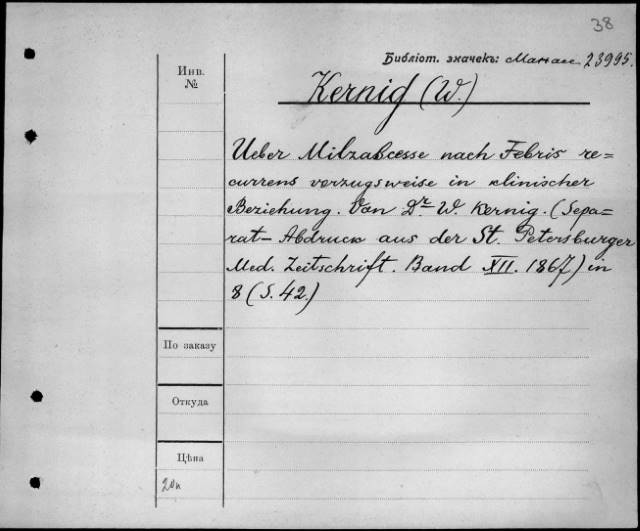 38
Библіот. значекъ: 23995.
Инв.
№
Kernig (W.)
Ueber Milzabcesse nach Febris re=
currens vorzugsweise in klinischer
Beziehung. Von Dr W. Kernig. (Sepa=
rat-Abdruck aus der St. Petersburger
Med. Zeitschrift. Band XII. 1867) in
8 (S. 42.)
По заказу
Откуда
Цѣна